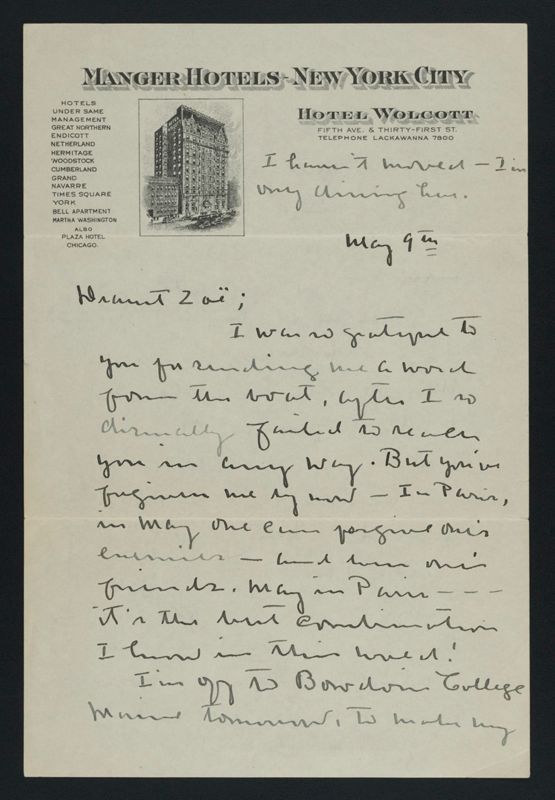 MANGER HOTELS - NEW YORK CITY
HOTELS
UNDER SAME
MANAGEMENT
GREAT NORTHERN
ENDICOTT
NETHERLAND
HERMITAGE
WOODSTOCK
CUMBERLAND
GRAND
NAVARRE
TIMES SQUARE
YORK
BELL APARTMENT
MARTHA WASHINGTON
ALSO
PLAZA HOTEL
CHICAGO.
HOTEL WOLCOTT
FIFTH AVE. & THIRTY-FIRST ST.
TELEPHONE LACKAWANNA 7800
I haven't moved - I'm
only dining here.
May 9th
Dearest Zoë;
I was so grateful to
you for sending me a word
from the boat, after I so
dismally failed to reach
you in any way. But you've
forgiven me by now - In Paris,
in May one can forgive one's
enemies - and even one's
friends. May in Paris - - -
it's the best combination
I know in this world!
I'm off to Bowdoin College
Maine tomorrow, to make my